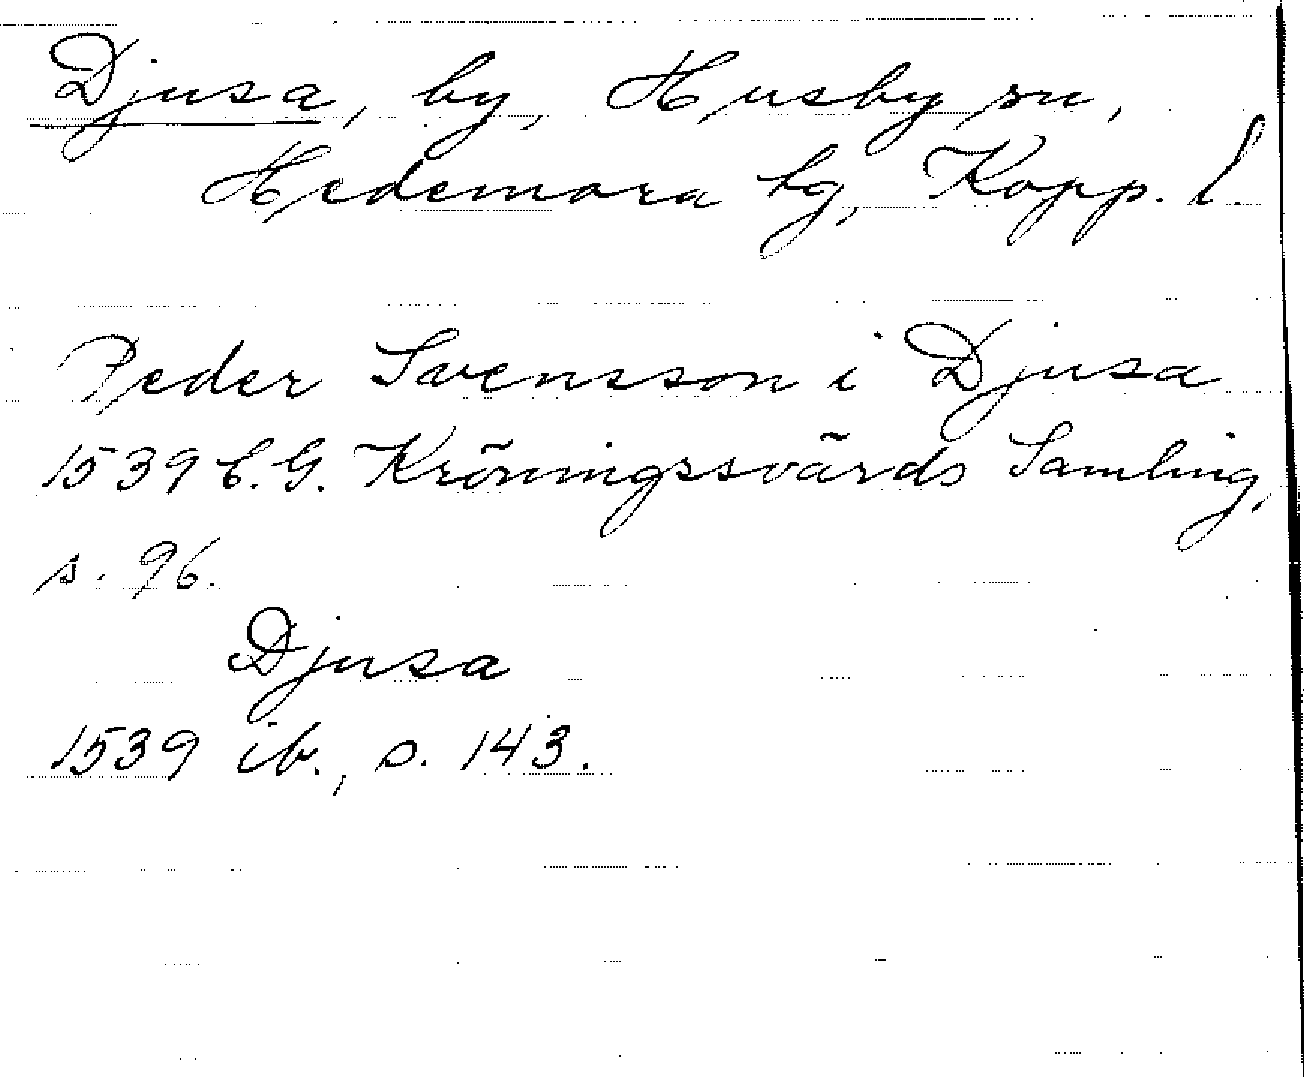 Djusa, by, Husby sn,
Hedemora hg, Kopp. l.
Peder Svensson i Djusa
1539 C.G. Kröningssvärds Samling,
s. 96.
Djusa
1539 ib., s. 143.